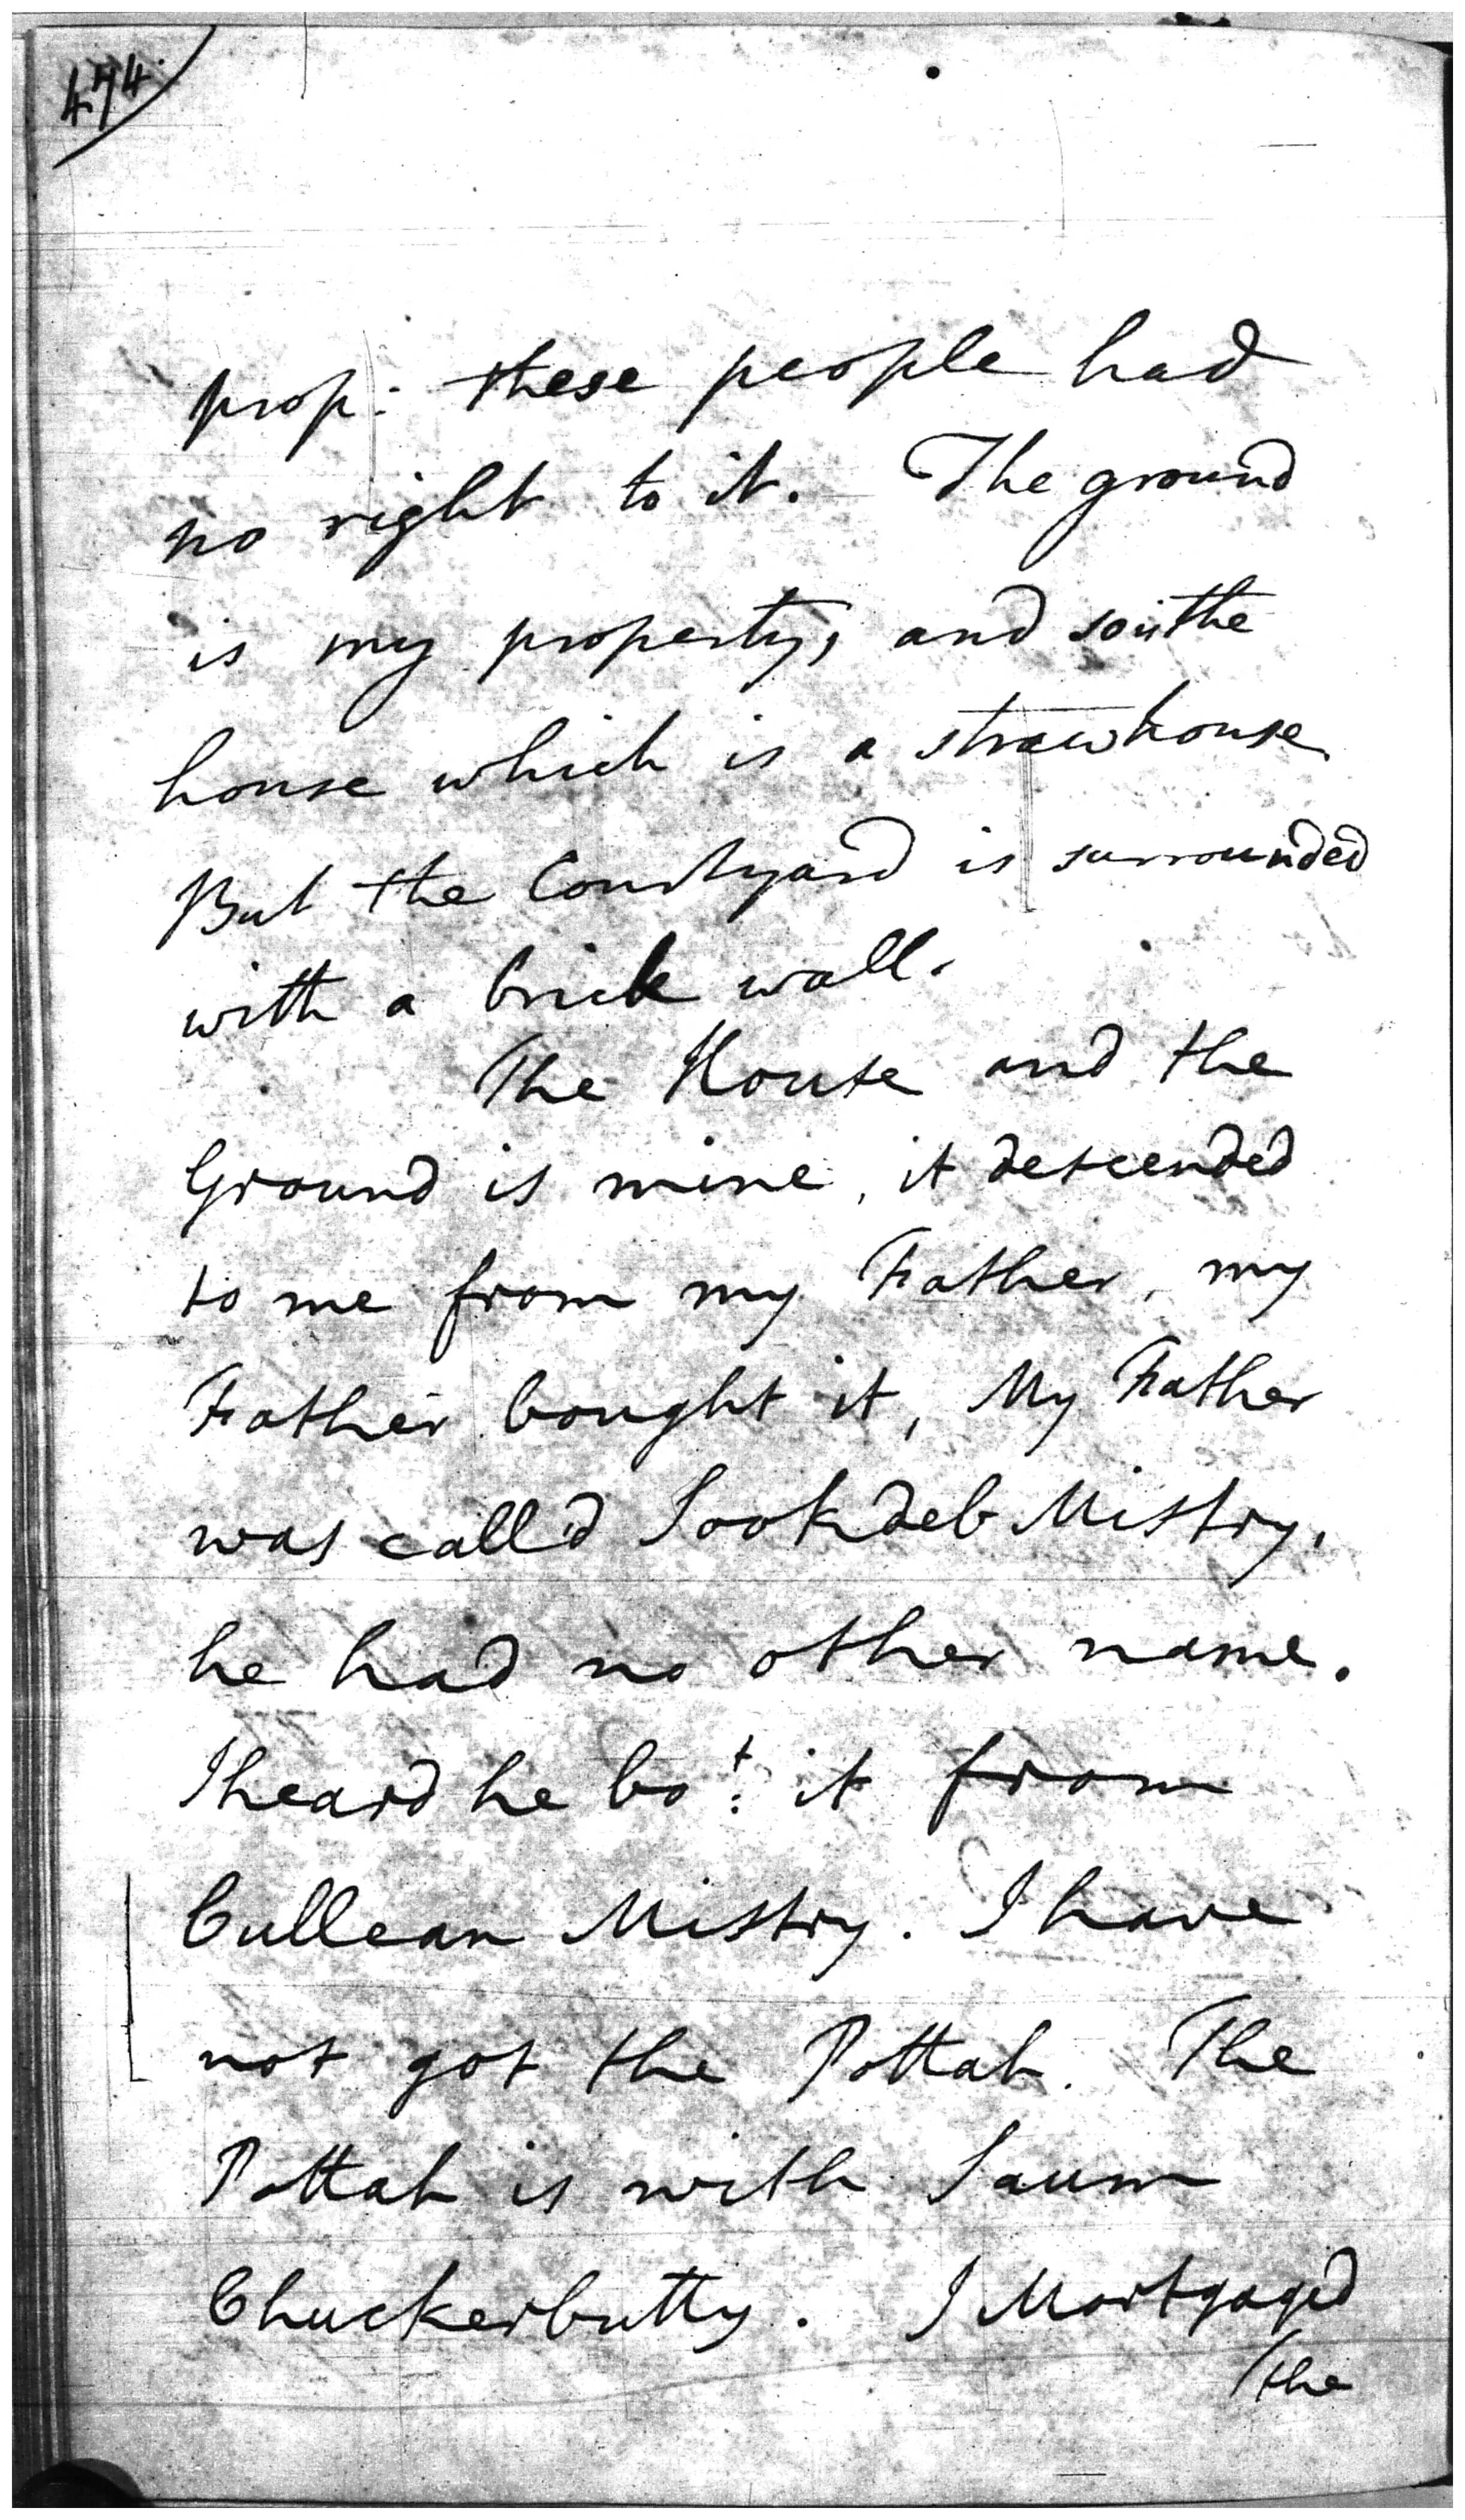 474
prop: these people had
no right to it. The ground
is my property, and so is the
house which is a strawhouse
But the Courtyard is surrounded
with a brick wall.
The House and the
Ground is mine, it descended
to me from my Father, my
Father bought it, My Father
was call'd Sookdeb Mistry,
he had no other name.
I heard he bot. it from
Cullean Mistry. I have
not got the Pottah. The
Pottah is with Saum
Chuckerbutty. I Mortgaged
the